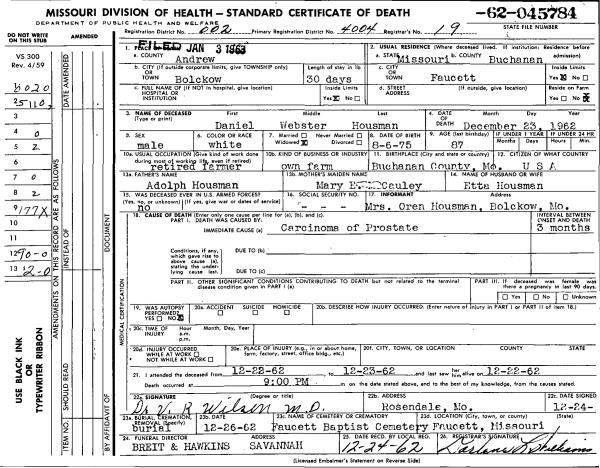 MISSOURI DIVISION OF HEALTH — STANDARD CERTIFICATE OF DEATH
-62-045784
DEPARTMENT OF PUBLIC HEALTH AND WELFARE
Registration District No. 002 Primary Registration District No. 4004 Registrar's No. 19
STATE FILE NUMBER
DO NOT WRITE ON THIS STUB
AMENDED
FILED JAN 3 1963
VS 300
Rev. 4/59
DATE AMENDED
1. PLACE
a. COUNTY Andrew
2. USUAL RESIDENCE (Where deceased lived. If institution: Residence before admission)
a. STATE Missouri b. COUNTY Buchanan
b. CITY (If outside corporate limits, give TOWNSHIP only) OR TOWN Bolckow
Length of stay in 1b 30 days
c. CITY OR TOWN Faucett
Inside Limits Yes No
c. FULL NAME OF (If NOT in hospital, give location) HOSPITAL OR INSTITUTION
Inside Limits Yes No
d. STREET ADDRESS (If outside, give location)
Reside on Farm Yes No
3. NAME OF DECEASED (Type or print)
First Middle Last
Daniel Webster Housman
4. DATE OF DEATH Month Day Year
December 23, 1962
5. SEX male
6. COLOR OR RACE white
7. Married Never Married Widowed Divorced
8. DATE OF BIRTH 8-6-75
9. AGE (last birthday) 87
IF UNDER 1 YEAR Months Days
IF UNDER 24 HR Hours Min.
10a. USUAL OCCUPATION (Give kind of work done during most of working life, even if retired) retired farmer
10b. KIND OF BUSINESS OR INDUSTRY own farm
11. BIRTHPLACE (City and state or country) Buchanan County, Mo.
12. CITIZEN OF WHAT COUNTRY U S A
13a. FATHER'S NAME Adolph Housman
13b. MOTHER'S MAIDEN NAME Mary Cauley
14. NAME OF HUSBAND OR WIFE Etta Housman
15. WAS DECEASED EVER IN U.S. ARMED FORCES? (Yes, no, or unknown) (If yes, give war or dates of service) no
16. SOCIAL SECURITY NO. - - -
17. INFORMANT Address
Mrs. Oren Housman, Bolckow, Mo.
18. CAUSE OF DEATH (Enter only one cause per line for (a), (b), and (c).
PART I. DEATH WAS CAUSED BY:
IMMEDIATE CAUSE (a) Carcinoma of Prostate
INTERVAL BETWEEN ONSET AND DEATH
3 months
Conditions, if any, which gave rise to above cause (a), stating the underlying cause last.
DUE TO (b)
DUE TO (c)
PART II. OTHER SIGNIFICANT CONDITIONS CONTRIBUTING TO DEATH but not related to the terminal disease condition given in PART I (a)
PART III. If deceased was female was there a pregnancy in last 90 days.
Yes No Unknown
19. WAS AUTOPSY PERFORMED? YES NO
20a. ACCIDENT SUICIDE HOMICIDE
20b. DESCRIBE HOW INJURY OCCURRED. (Enter nature of injury in PART I or PART II of item 18.)
20c. TIME OF INJURY Hour a.m. p.m. Month, Day, Year
20d. INJURY OCCURRED WHILE AT WORK NOT WHILE AT WORK
20e. PLACE OF INJURY (e.g., in or about home, farm, factory, street, office bldg., etc.)
20f. CITY, TOWN, OR LOCATION COUNTY STATE
21. I attended the deceased from 12-22-62 to 12-23-62 and last saw her alive on 12-22-62
Death occurred at 9:00 PM m on the date stated above, and to the best of my knowledge, from the causes stated.
22a. SIGNATURE (Degree or title)
Dr. V. R. Wilson M.D.
22b. ADDRESS Rosendale, Mo.
22c. DATE SIGNED 12-24-
23a. BURIAL, CREMATION, REMOVAL (Specify) burial
23b. DATE 12-26-62
23c. NAME OF CEMETERY OR CREMATORY Faucett Baptist Cemetery
23d. LOCATION (City, town, or county) (State)
Faucett, Missouri
24. FUNERAL DIRECTOR ADDRESS
BREIT & HAWKINS SAVANNAH
25. DATE RECD. BY LOCAL REG. 12-24-62
26. REGISTRAR'S SIGNATURE
(Licensed Embalmer's Statement on Reverse Side)
3
4 0
5 2
6
7 0
8 2
9 177X
10
11
1290-0
13 2-0
USE BLACK INK OR TYPEWRITER RIBBON
AMENDMENTS ON THIS RECORD ARE AS FOLLOWS
INSTEAD OF
DOCUMENT
SHOULD READ
ITEM NO.
BY AFFIDAVIT OF
MEDICAL CERTIFICATION